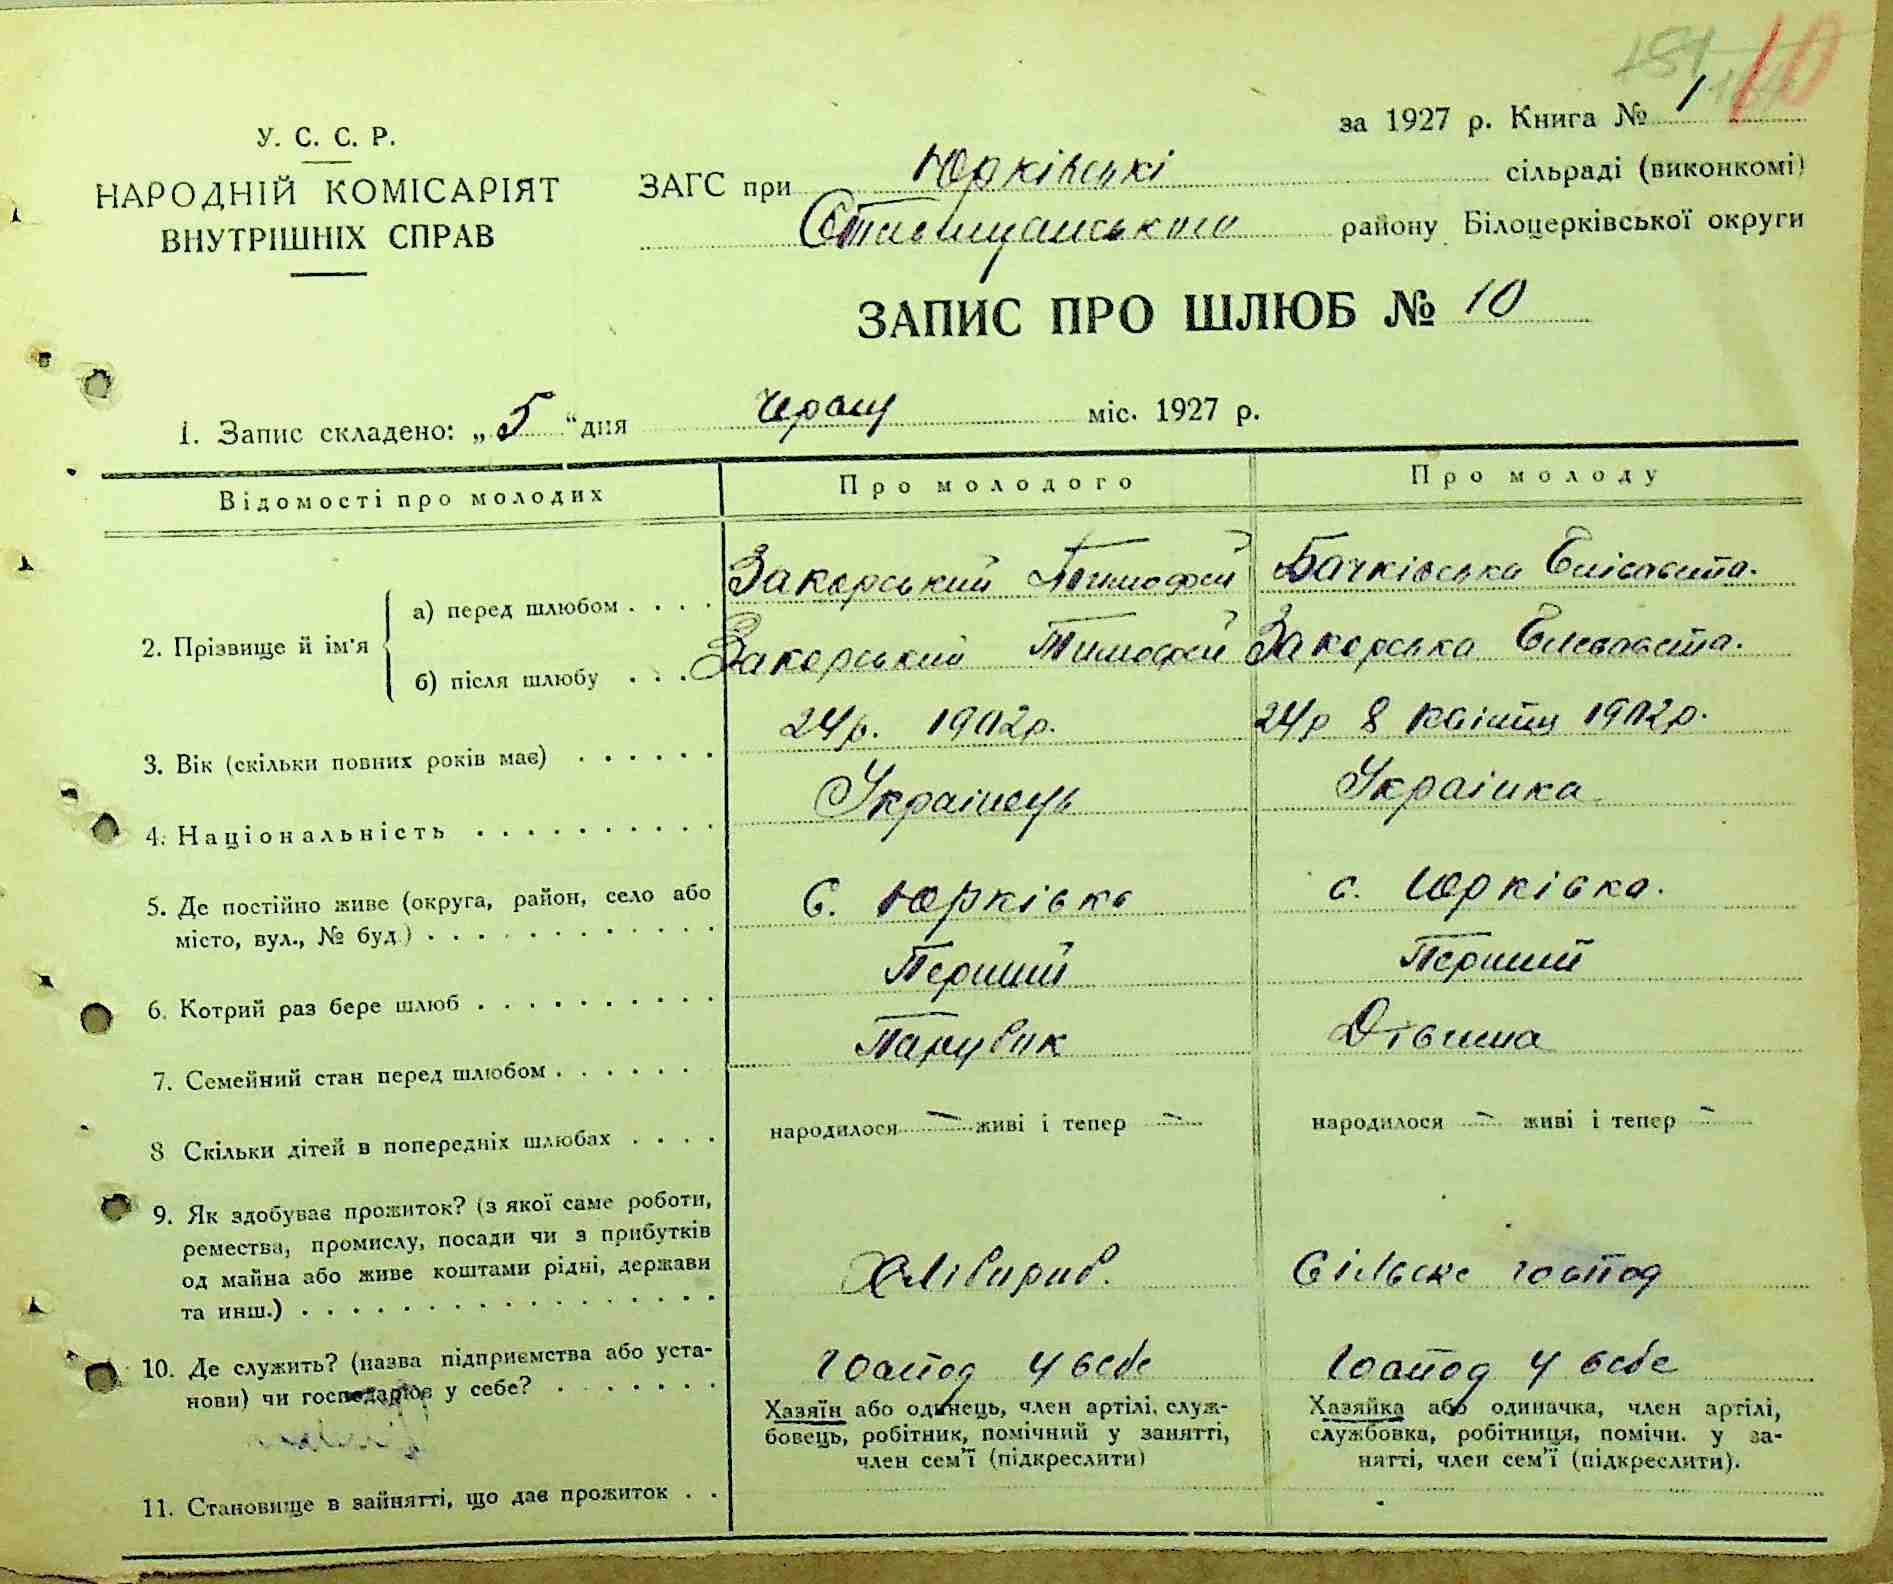 10
У. С. С. Р.
НАРОДНІЙ КОМІСАРІЯТ
ВНУТРІШНІХ СПРАВ
за 1927 р. Книга № 1
ЗАГС при Юрківські сільраді (виконкомі)
Ставищанського району Білоцерківської округи
ЗАПИС ПРО ШЛЮБ № 10
1. Запис складено: „5“ дня міс. 1927 р.
Відомості про молодих Про молодого Про молоду
2. Прізвище й ім'я
а) перед шлюбом . . . . Закорський Тимофей Бачківська Елісавета.
б) після шлюбу . . . Закорський Тимофей Закорська Елісавета.
3. Вік (скільки повних років має) . . . . . . 24р. 1902р. 24р 8 квітня 1902р.
4. Національність . . . . . . . . . . Українець Українка
5. Де постійно живе (округа, район, село або
місто, вул., № буд.) . . . . . . . . . . . . с. Юрківка с. Юрківка.
6. Котрий раз бере шлюб . . . . . . . . . . Перший Перший
7. Семейний стан перед шлюбом . . . . . . Парубок Дівчина
8 Скільки дітей в попередніх шлюбах . . . . народилося — живі і тепер — народилося — живі і тепер —
9. Як здобуває прожиток? (з якої саме роботи,
ремества, промислу, посади чи з прибутків
од майна або живе коштами рідні, держави
та инш.) . . . . . . . . . . . . . . . . . Хлібороб. Сільске господ
10. Де служить? (назва підприємства або уста-
нови) чи господарює у себе? . . . . . . . Господ у себе Господ у себе
Хазяїн або одинець, член артілі, служ-
бовець, робітник, помічний у занятті,
член сем'ї (підкреслити)
Хазяйка або одиначка, член артілі,
службовка, робітниця, помічн. у за-
нятті, член сем'ї (підкреслити).
11. Становище в зайнятті, що дає прожиток . .